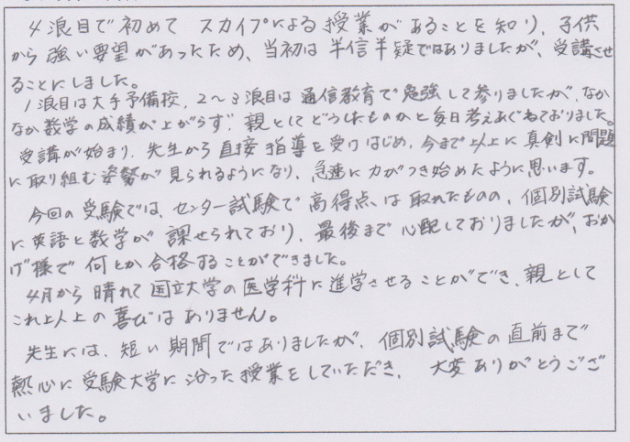 4浪目で初めて スカイプによる授業があることを知り、子供
から強い要望があったため、当初は半信半疑ではありましたが、受講させ
ることにしました。
1浪目は大手予備校、2〜3浪目は通信教育で勉強して参りましたが、なか
なか数学の成績が上がらず、親としてどうしたものかと毎日考えあぐねておりました。
受講が始まり、先生から直接指導を受けはじめ、今まで以上に真剣に問題
に取り組む姿勢が見られるようになり、急速に力がつき始めたように思います。
今回の受験では、センター試験で高得点は取れたものの、個別試験
に英語と数学が課せられており、最後まで心配しておりましたが、おか
げ様で何とか合格することができました。
4月から晴れて国立大学の医学科に進学させることができ、親として
これ以上の喜びはありません。
先生には、短い期間ではありましたが、個別試験の直前まで
熱心に受験大学に沿った授業をしていただき、大変ありがとうござ
いました。